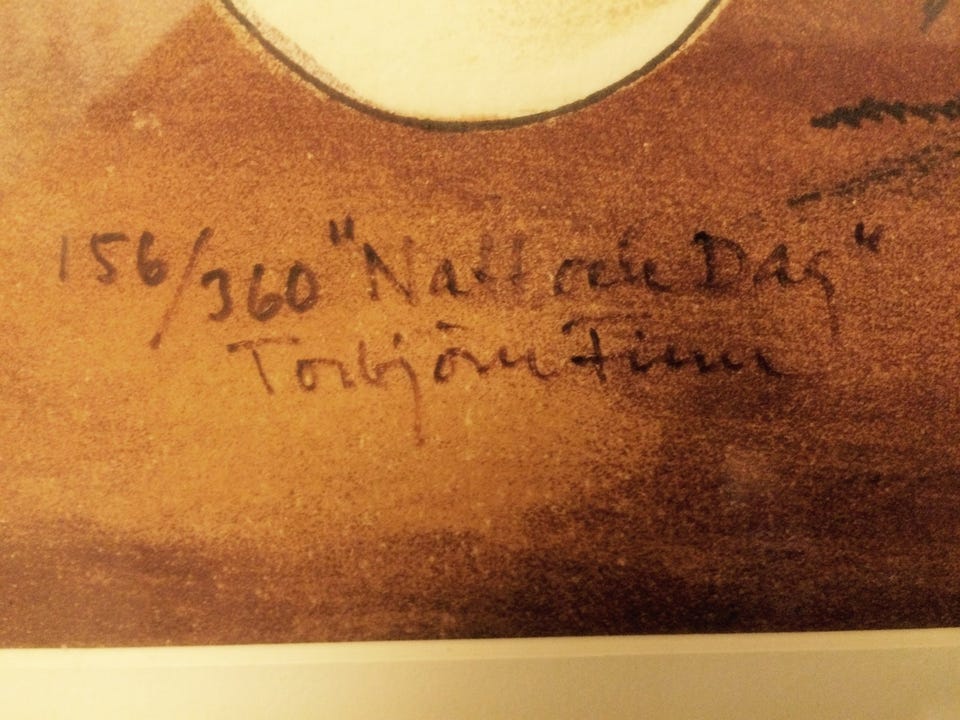 156/360 "Natt och Dag"
Torbjörn Finn